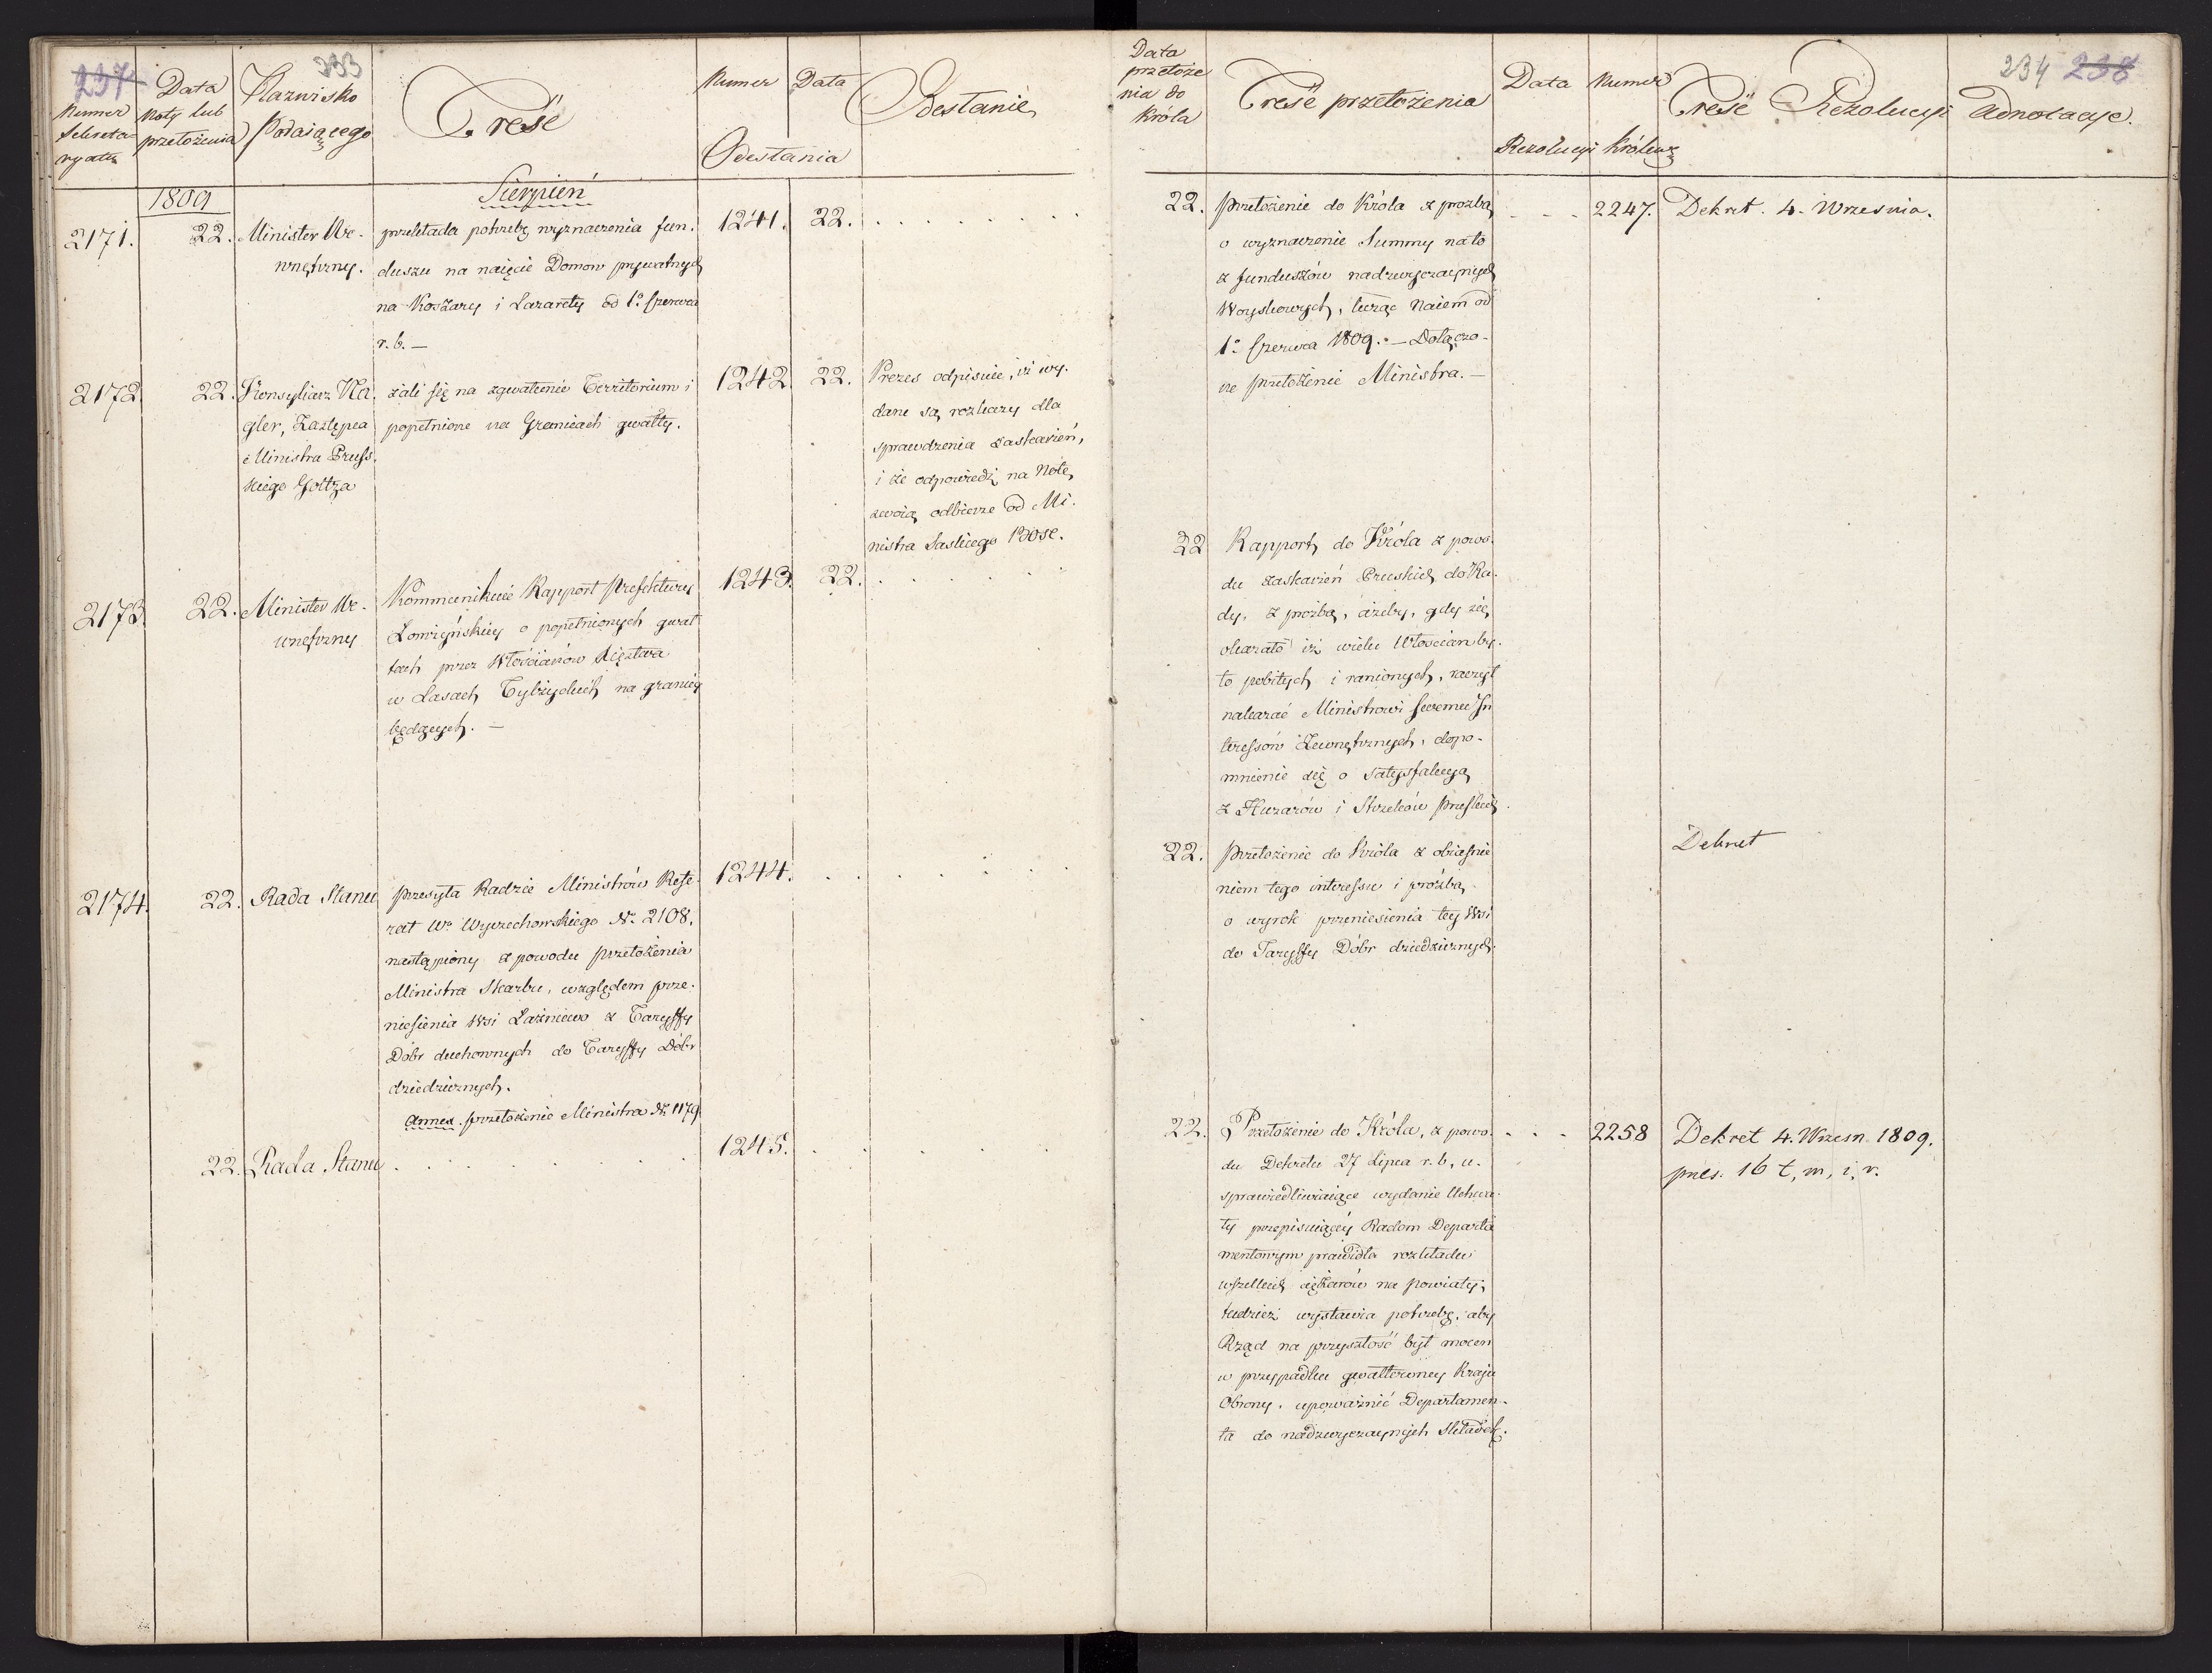 237 233
Numer Sekretaryatu
Data Noty lub przełożenia
Nazwisko Podaiącego
Treść
Numer Data
Odesłania
Odesłanie
1809
Sierpień
2171. 22. Minister We-
wnętrzny.
przekłada potrzebę wyznaczenia fun-
duszu na naięcie Domow prywatnych
na Koszary i Lazarety od 1o Czerwca
r. b. —
1241. 22.
2172. 22. Konsyliarz Na-
gler, Zastępca
Ministra Prus-
kiego Goltza
żali się na zgwałcenie Territorium i
popełnione na Granicach gwałty.
1242. 22. Prezes odpisuie, iż wy-
dane są rozkazy dla
sprawdzenia zaskarżeń,
i że odpowiedź na Notę
swoią odbierze od Mi-
nistra Saskiego Bose.
2173. 22. Minister We-
wnętrzny
Kommunikuie Rapport Prefektury
Łomżyńskiey o popełnionych gwał-
tach przez Włościanów Xięztwa
w Lasach Tylżyckich na granicy
będących. —
1243. 22.
2174. 22. Rada Stanu
przesyła Radzie Ministrów Refe-
rat Wo Wyczechowskiego No 2108.
nastąpiony z powodu przełożenia
Ministra Skarbu, względem prze-
niesienia Wsi Łaźniewo z Taryffy
Dóbr duchownych do Taryffy Dóbr
dziedzicznych.
Annex. przełożenie Ministra No 1179.
1244.
22. Rada Stanu
1245.
234 238
Data przełoże
nia do
Króla
Treść przełożenia
Data Numer
Rezolucyi Królews:
Treść Rezolucyi
Adnotacye.
22. Przełożenie do Króla z prozbą
o wyznaczenie Summy na to
z funduszów nadzwyczaynych
Woyskowych, licząc Naiem od
1o Czerwca 1809. — Dołączo-
ne przełożenie Ministra. —
2247. Dekret. 4. Wrzesnia.
22 Rapport do Króla z powo-
du zaskarżeń Pruskich do Ra-
dy, z prozbą, ażeby, gdy się
okazało iż wielu Włoscian by-
ło pobitych i ranionych, raczył
nakazać Ministrowi swemu In
teressów Zewnętrznych, dopo-
mnienie się o satysfakcyą
z Huzarów i Strzelców Pruskich.
22. Przełożenie do Króla z obiaśnie
niem tego interessu i prozbą
o wyrok przeniesienia tey Wsi
do Taryffy Dóbr dziedzicznych.
Dekret
22. Przełożenie do Króla, z powo-
du Dekretu 27 Lipca r. b. u-
sprawiedliwiaiące wydanie Uchwa-
ły przepisuiącey Radom Departa
mentowym prawidła rozkładu
wszelkich ciężarów na Powiaty;
tudzież wystawia potrzebę, aby
Rząd na przyszłość był mocen
w przypadku gwałtowney Kraju
Obrony, upoważnić Departamen-
ta do nadzwyczaynych składek.
2258 Dekret 4. Wrzesn. 1809.
pres. 16 t. m. i. r.